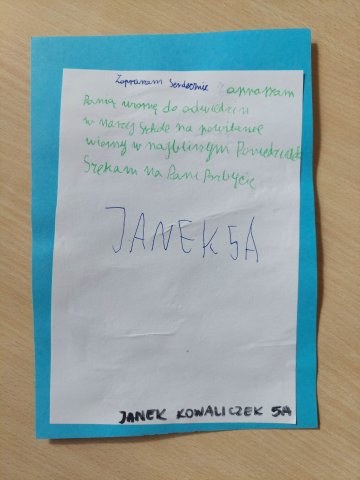 Zapraszam Serdecznie apraszam
Panią wiosnę do odwiedzin
w naszej szkole na powitanie
wiosny w najbliższym Poniedziałek
Szekam na Pani Przbycie
JANEK 5A
JANEK KOWALICZEK 5A